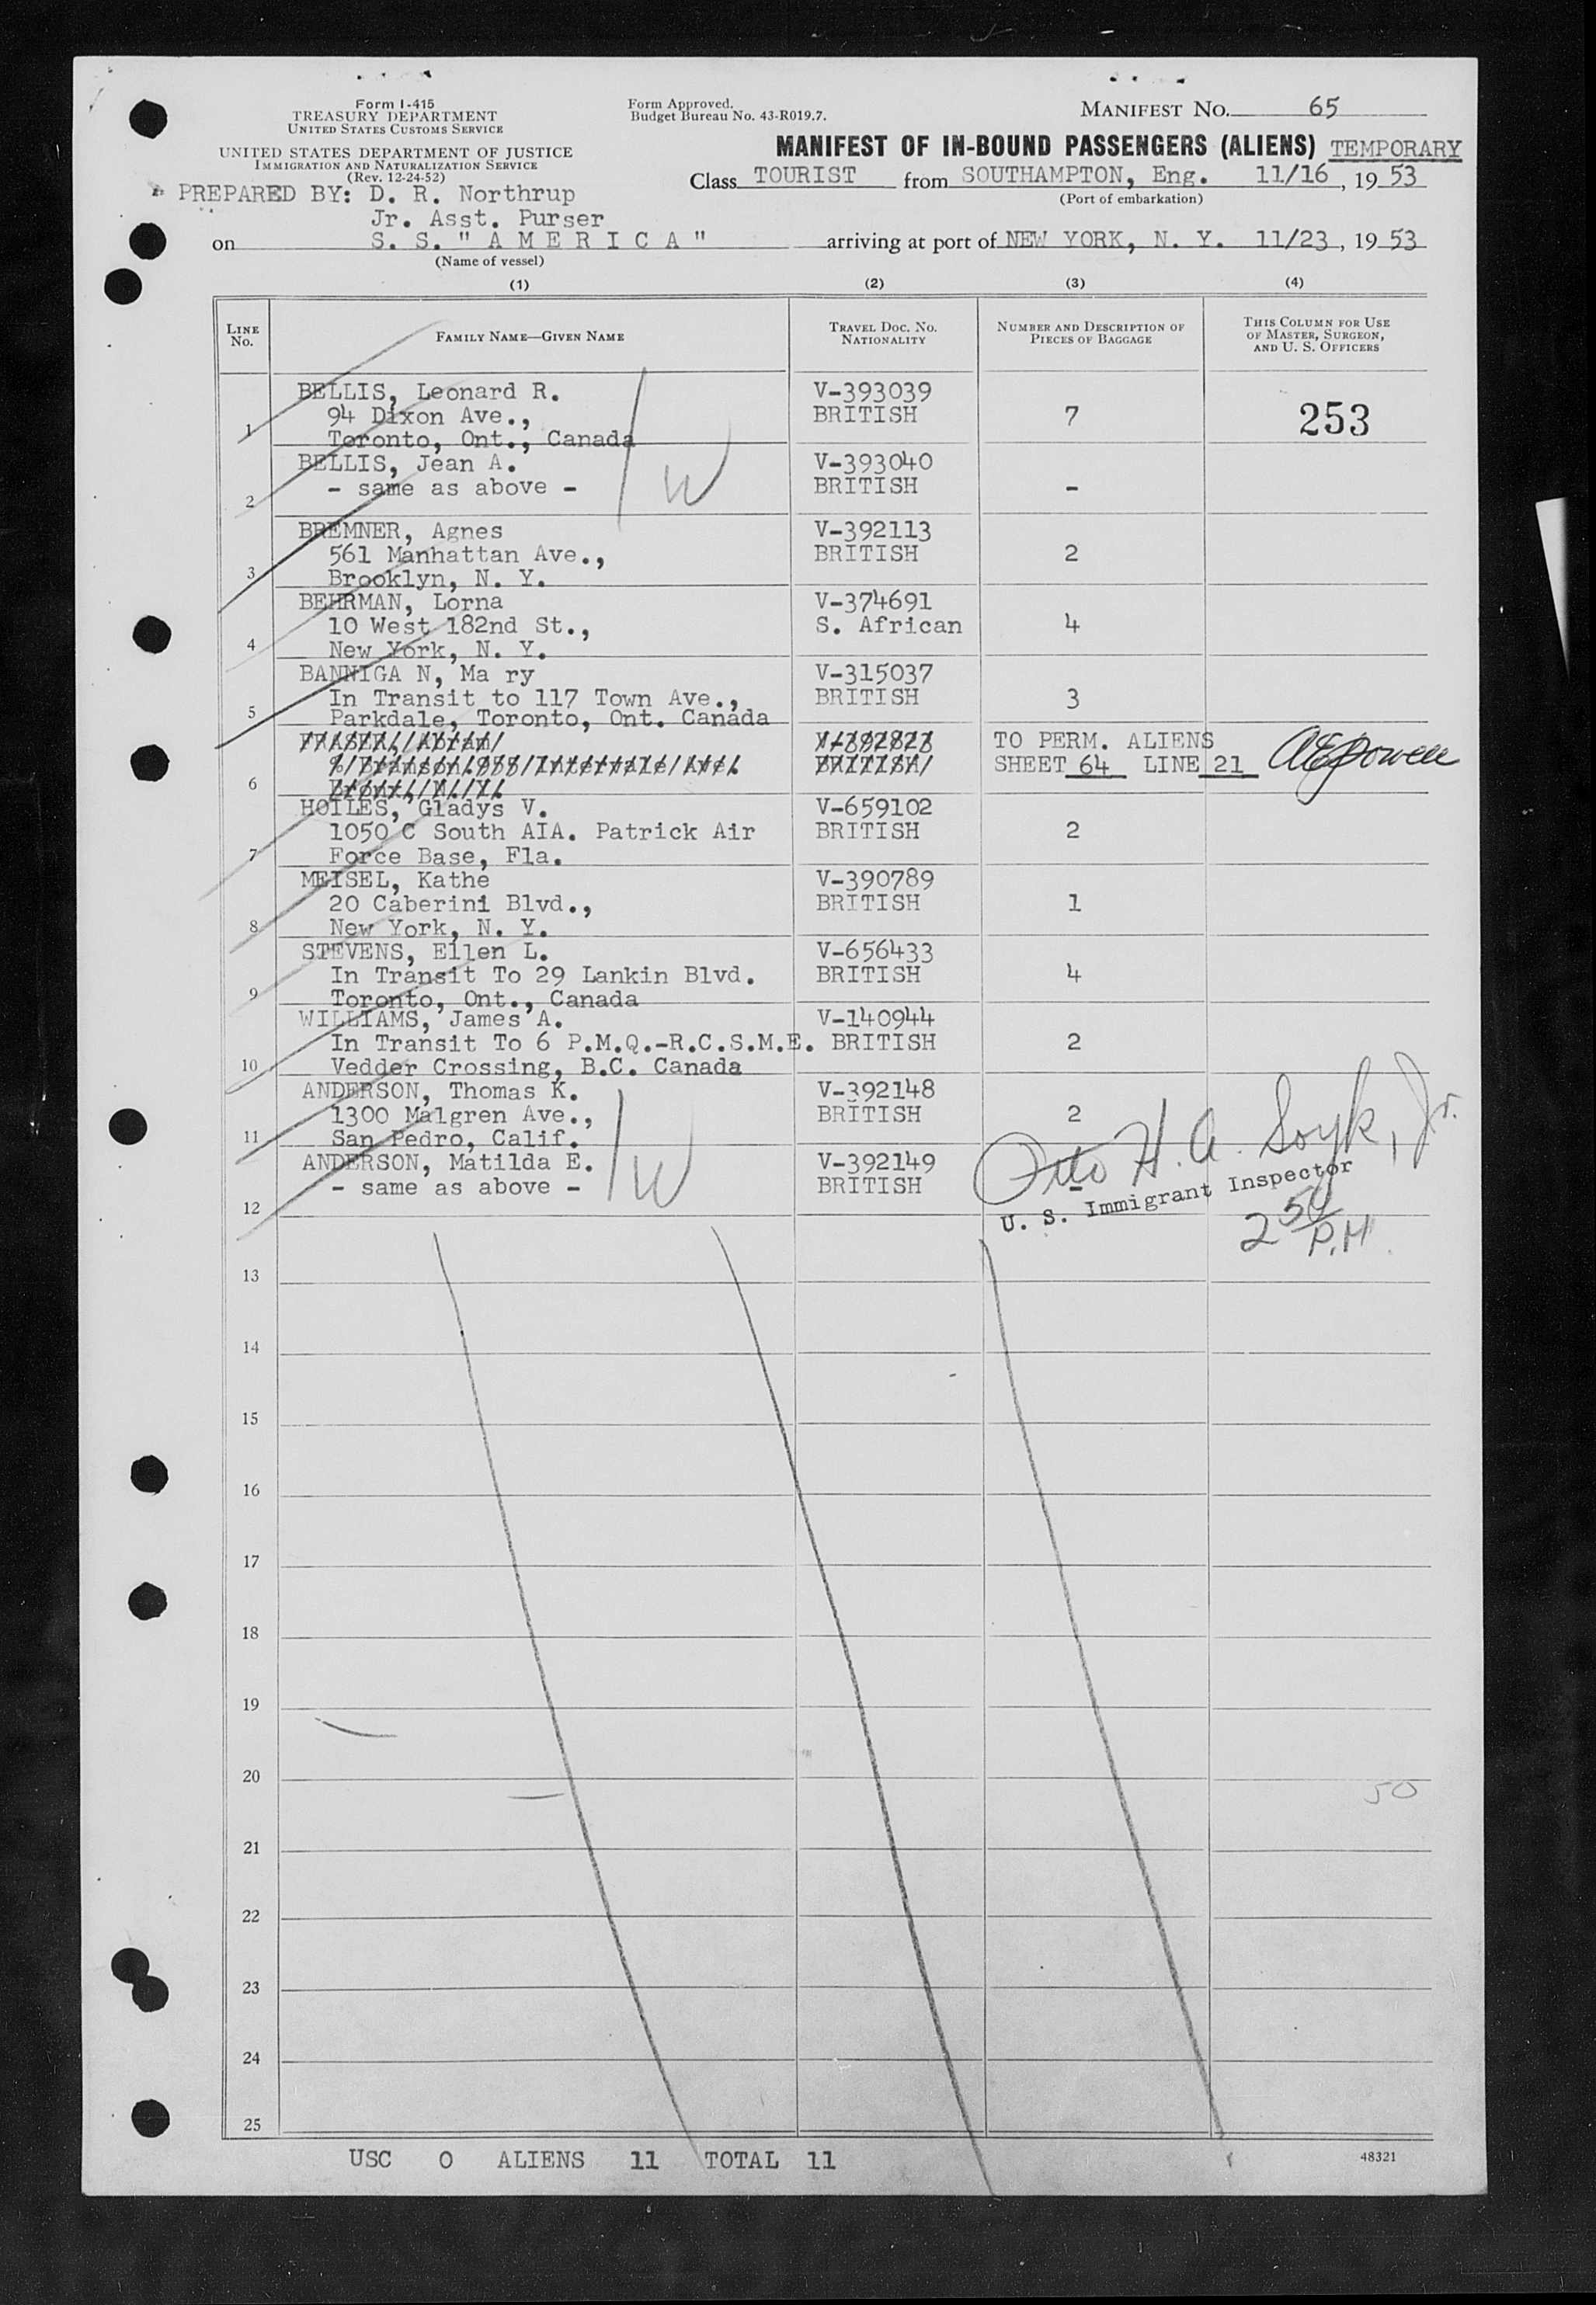 Form I-415
TREASURY DEPARTMENT
UNITED STATES CUSTOMS SERVICE
UNITED STATES DEPARTMENT OF JUSTICE
IMMIGRATION AND NATURALIZATION SERVICE
(Rev. 12-24-52)
Form Approved.
Budget Bureau No. 43-R019.7.
MANIFEST NO. 65
MANIFEST OF IN-BOUND PASSENGERS (ALIENS) TEMPORARY
Class TOURIST from SOUTHAMPTON, Eng. 11/16, 1953
(Port of embarkation)
PREPARED BY: D. R. Northrup
Jr. Asst. Purser
on S. S. " A M E R I C A " arriving at port of NEW YORK, N. Y. 11/23, 1953
(Name of vessel)
(1) (2) (3) (4)
LINE No. FAMILY NAME—GIVEN NAME TRAVEL DOC. NO. NATIONALITY NUMBER AND DESCRIPTION OF PIECES OF BAGGAGE THIS COLUMN FOR USE OF MASTER, SURGEON, AND U. S. OFFICERS
BELLIS, Leonard R. V-393039
94 Dixon Ave., BRITISH 7 253
1 Toronto, Ont., Canada
BELLIS, Jean A. V-393040
- same as above - BRITISH -
2
W
BREMNER, Agnes V-392113
561 Manhattan Ave., BRITISH 2
3 Brooklyn, N. Y.
BEHRMAN, Lorna V-374691
10 West 182nd St., S. African 4
4 New York, N. Y.
BANNIGA N, Ma ry V-315037
In Transit to 117 Town Ave., BRITISH 3
5 Parkdale, Toronto, Ont. Canada
TO PERM. ALIENS
BRITISH SHEET 64 LINE 21
6
HOILES, Gladys V. V-659102
1050 C South AIA. Patrick Air BRITISH 2
7 Force Base, Fla.
MEISEL, Kathe V-390789
20 Caberini Blvd., BRITISH 1
8 New York, N. Y.
STEVENS, Ellen L. V-656433
In Transit To 29 Lankin Blvd. BRITISH 4
9 Toronto, Ont., Canada
WILLIAMS, James A. V-140944
In Transit To 6 P.M.Q.-R.C.S.M.E. BRITISH 2
10 Vedder Crossing, B.C. Canada
ANDERSON, Thomas K. V-392148
1300 Malgren Ave., BRITISH 2
11 San Pedro, Calif.
ANDERSON, Matilda E. V-392149
- same as above - BRITISH -
12
W
Otto H. A. Soyk, Jr.
U. S. Immigrant Inspector
2 50 P.M.
13
14
15
16
17
18
19
20
50
21
22
23
24
25
USC 0 ALIENS 11 TOTAL 11
48321